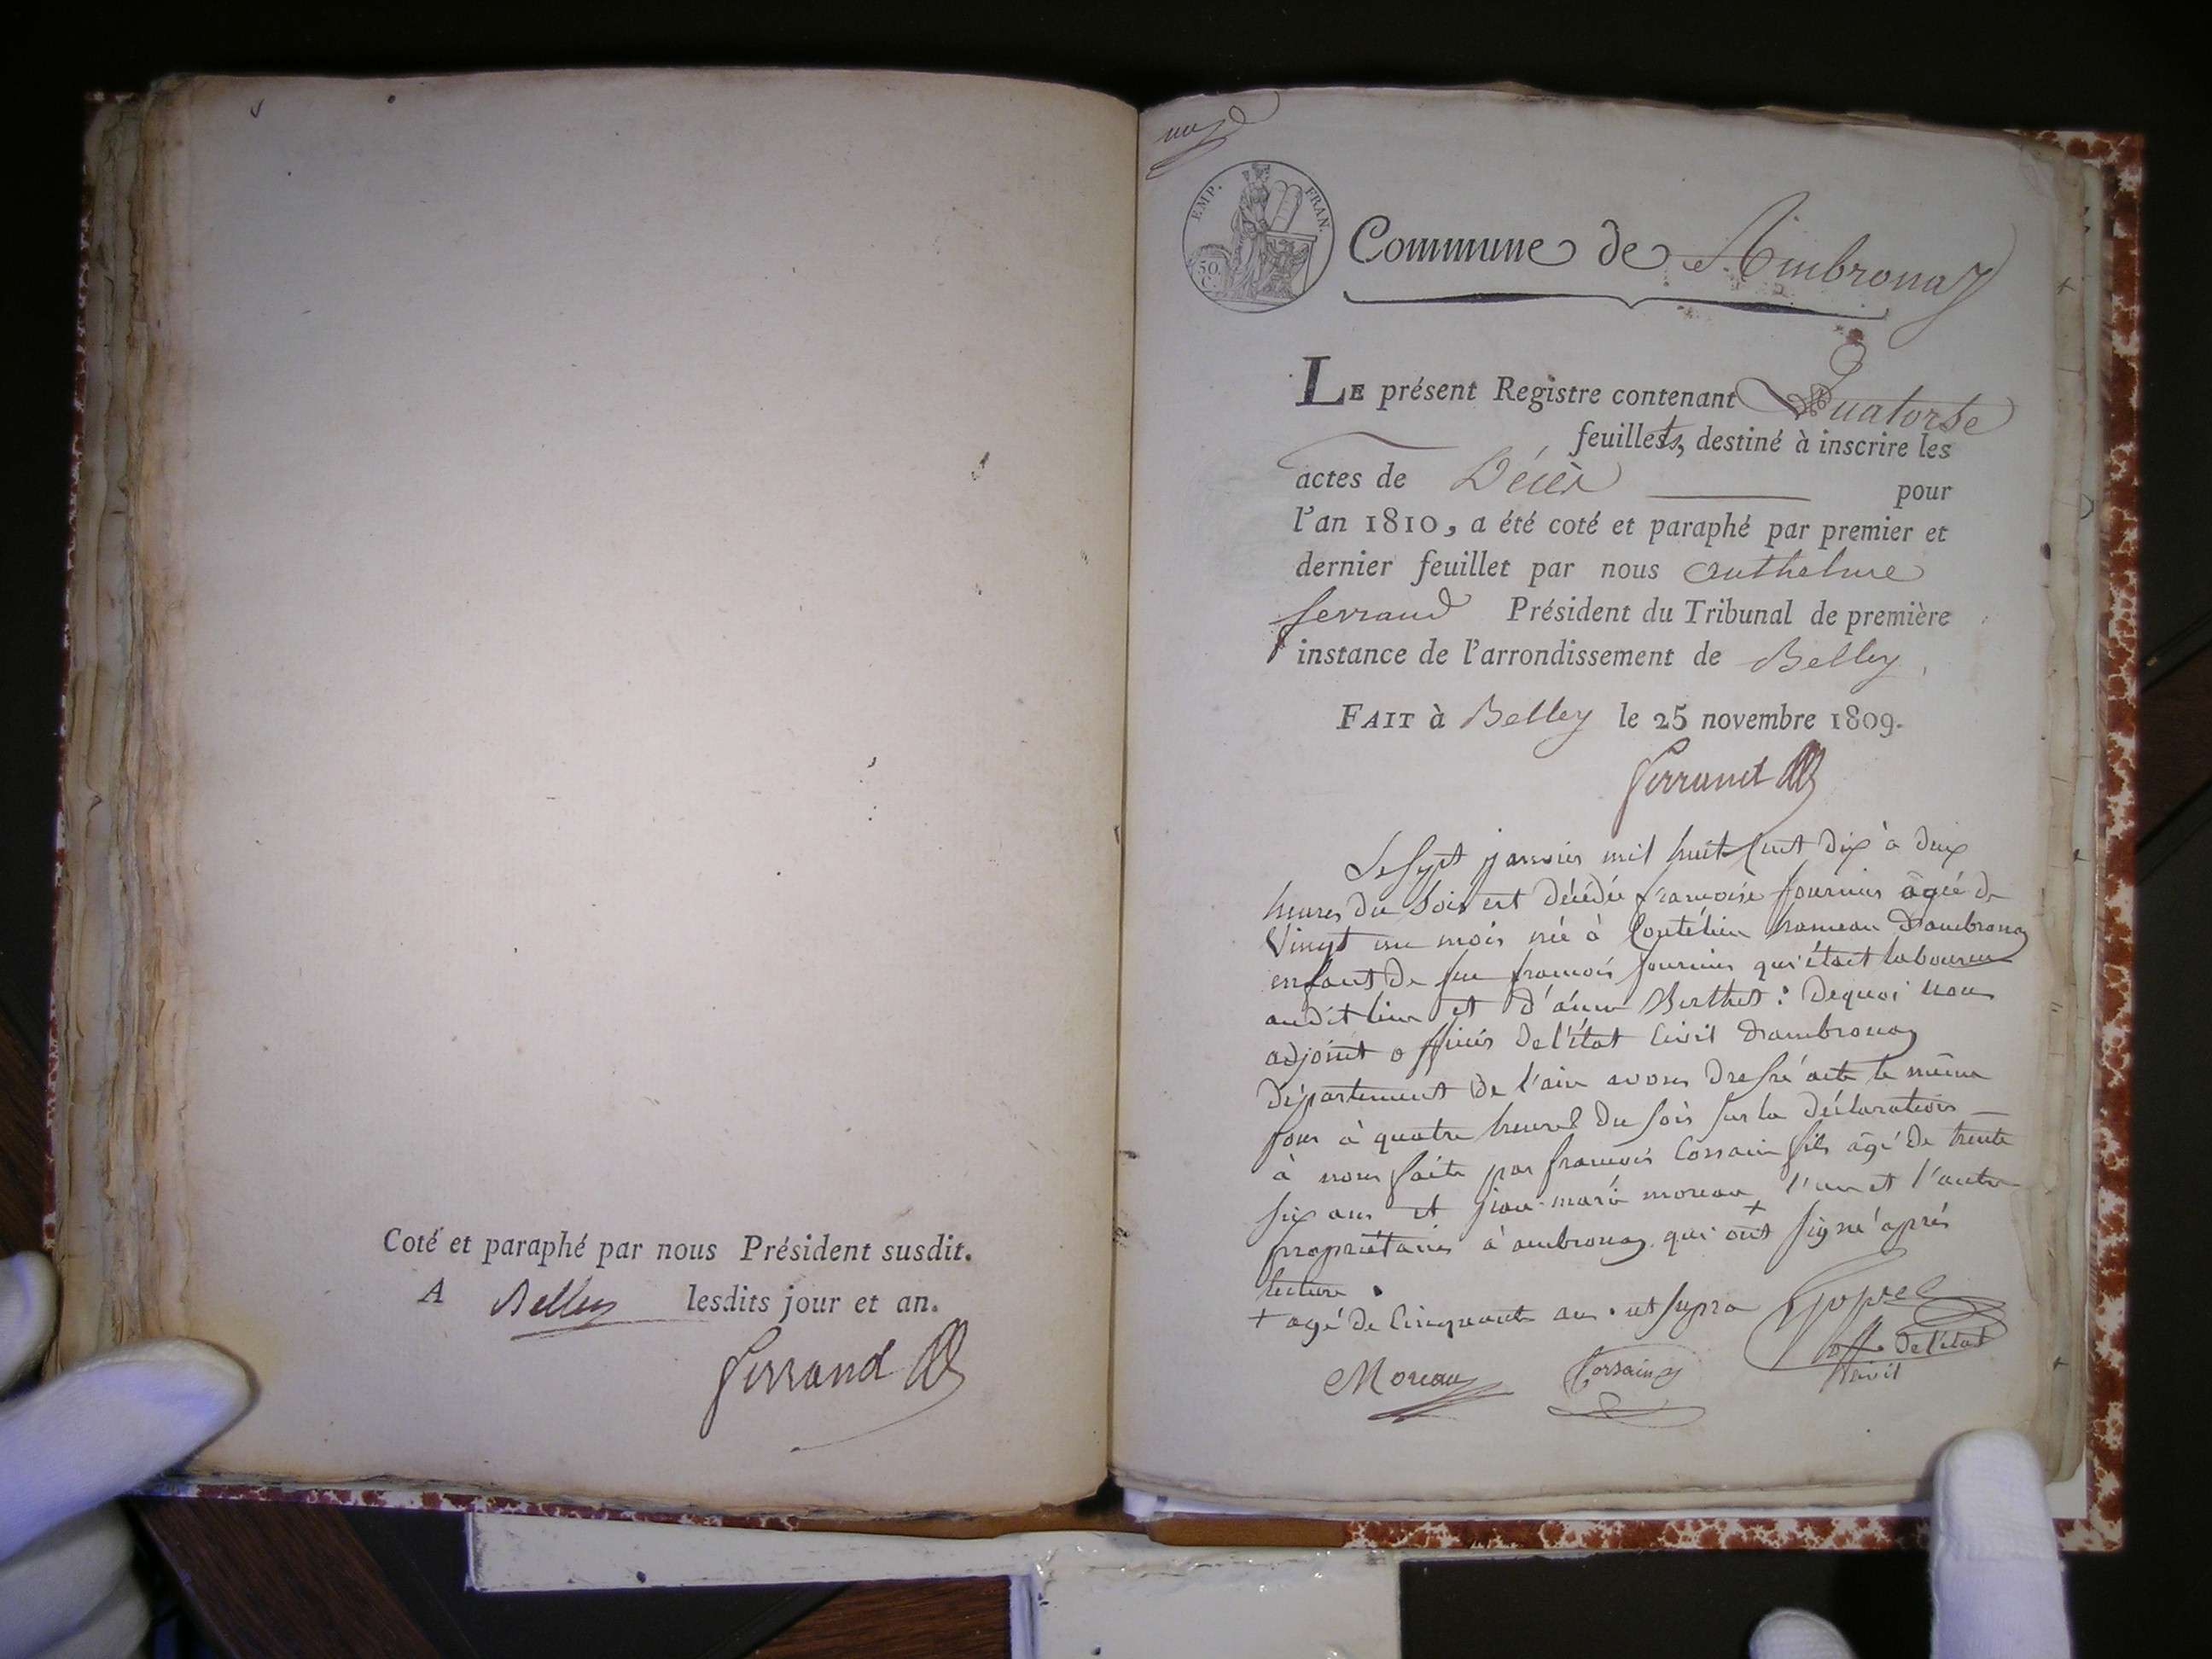 Coté et paraphé par nous Président susdit.
A Belley lesdits jour et an.
Ferrand
EMP. FRAN.
50.
C.
Commune de Ambronay
LE présent Registre contenant Quatorse
feuillets, destiné à inscrire les
actes de Décès pour
l'an 1810, a été coté et paraphé par premier et
dernier feuillet par nous Anthelme
ferrand Président du Tribunal de première
instance de l'arrondissement de Belley
FAIT à Belley le 25 novembre 1809.
Ferrand
Le sept janvier mil huit cent dix à deux
heures du soir est décédée françoise fournier âgée de
Vingt un mois née à hameau D'ambronay
enfant de feu françois fournier qui était laboureur
audit lieu et d'anne Berthet : Dequoi nous
adjoint officier de l'état Civil D'ambronay
Département de l'ain avons dressé acte le même
jour à quatre heures du soir sur la déclaration
à nous faite par françois Corsain fils âgé de trente
six ans et jean-marie moreau + l'un et l'autre
propriétaires à ambronay qui ont signé après
lecture.
+ agé de Cinquante ans. ut supra
off. de l'état
Civil
Moreau Corsain